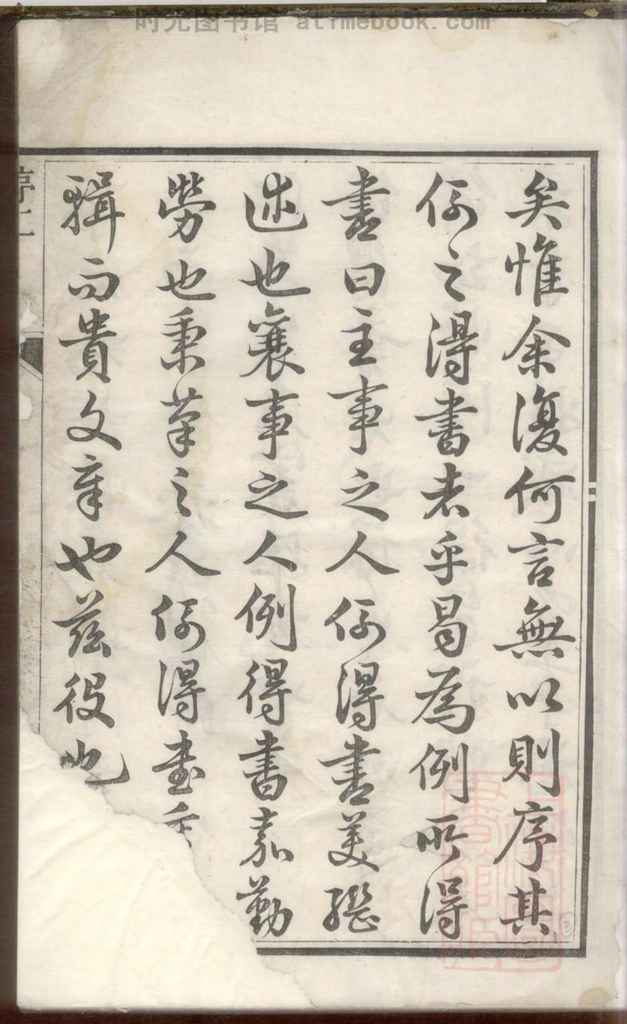 时光图书馆
矣惟余復何言無以則序其
例之得書者乎曷為例所得
書曰主事之人例得書美繼
述也襄事之人例得書嘉勤
勞也秉筆之人例得書
輯而貴文章也茲役也
序二